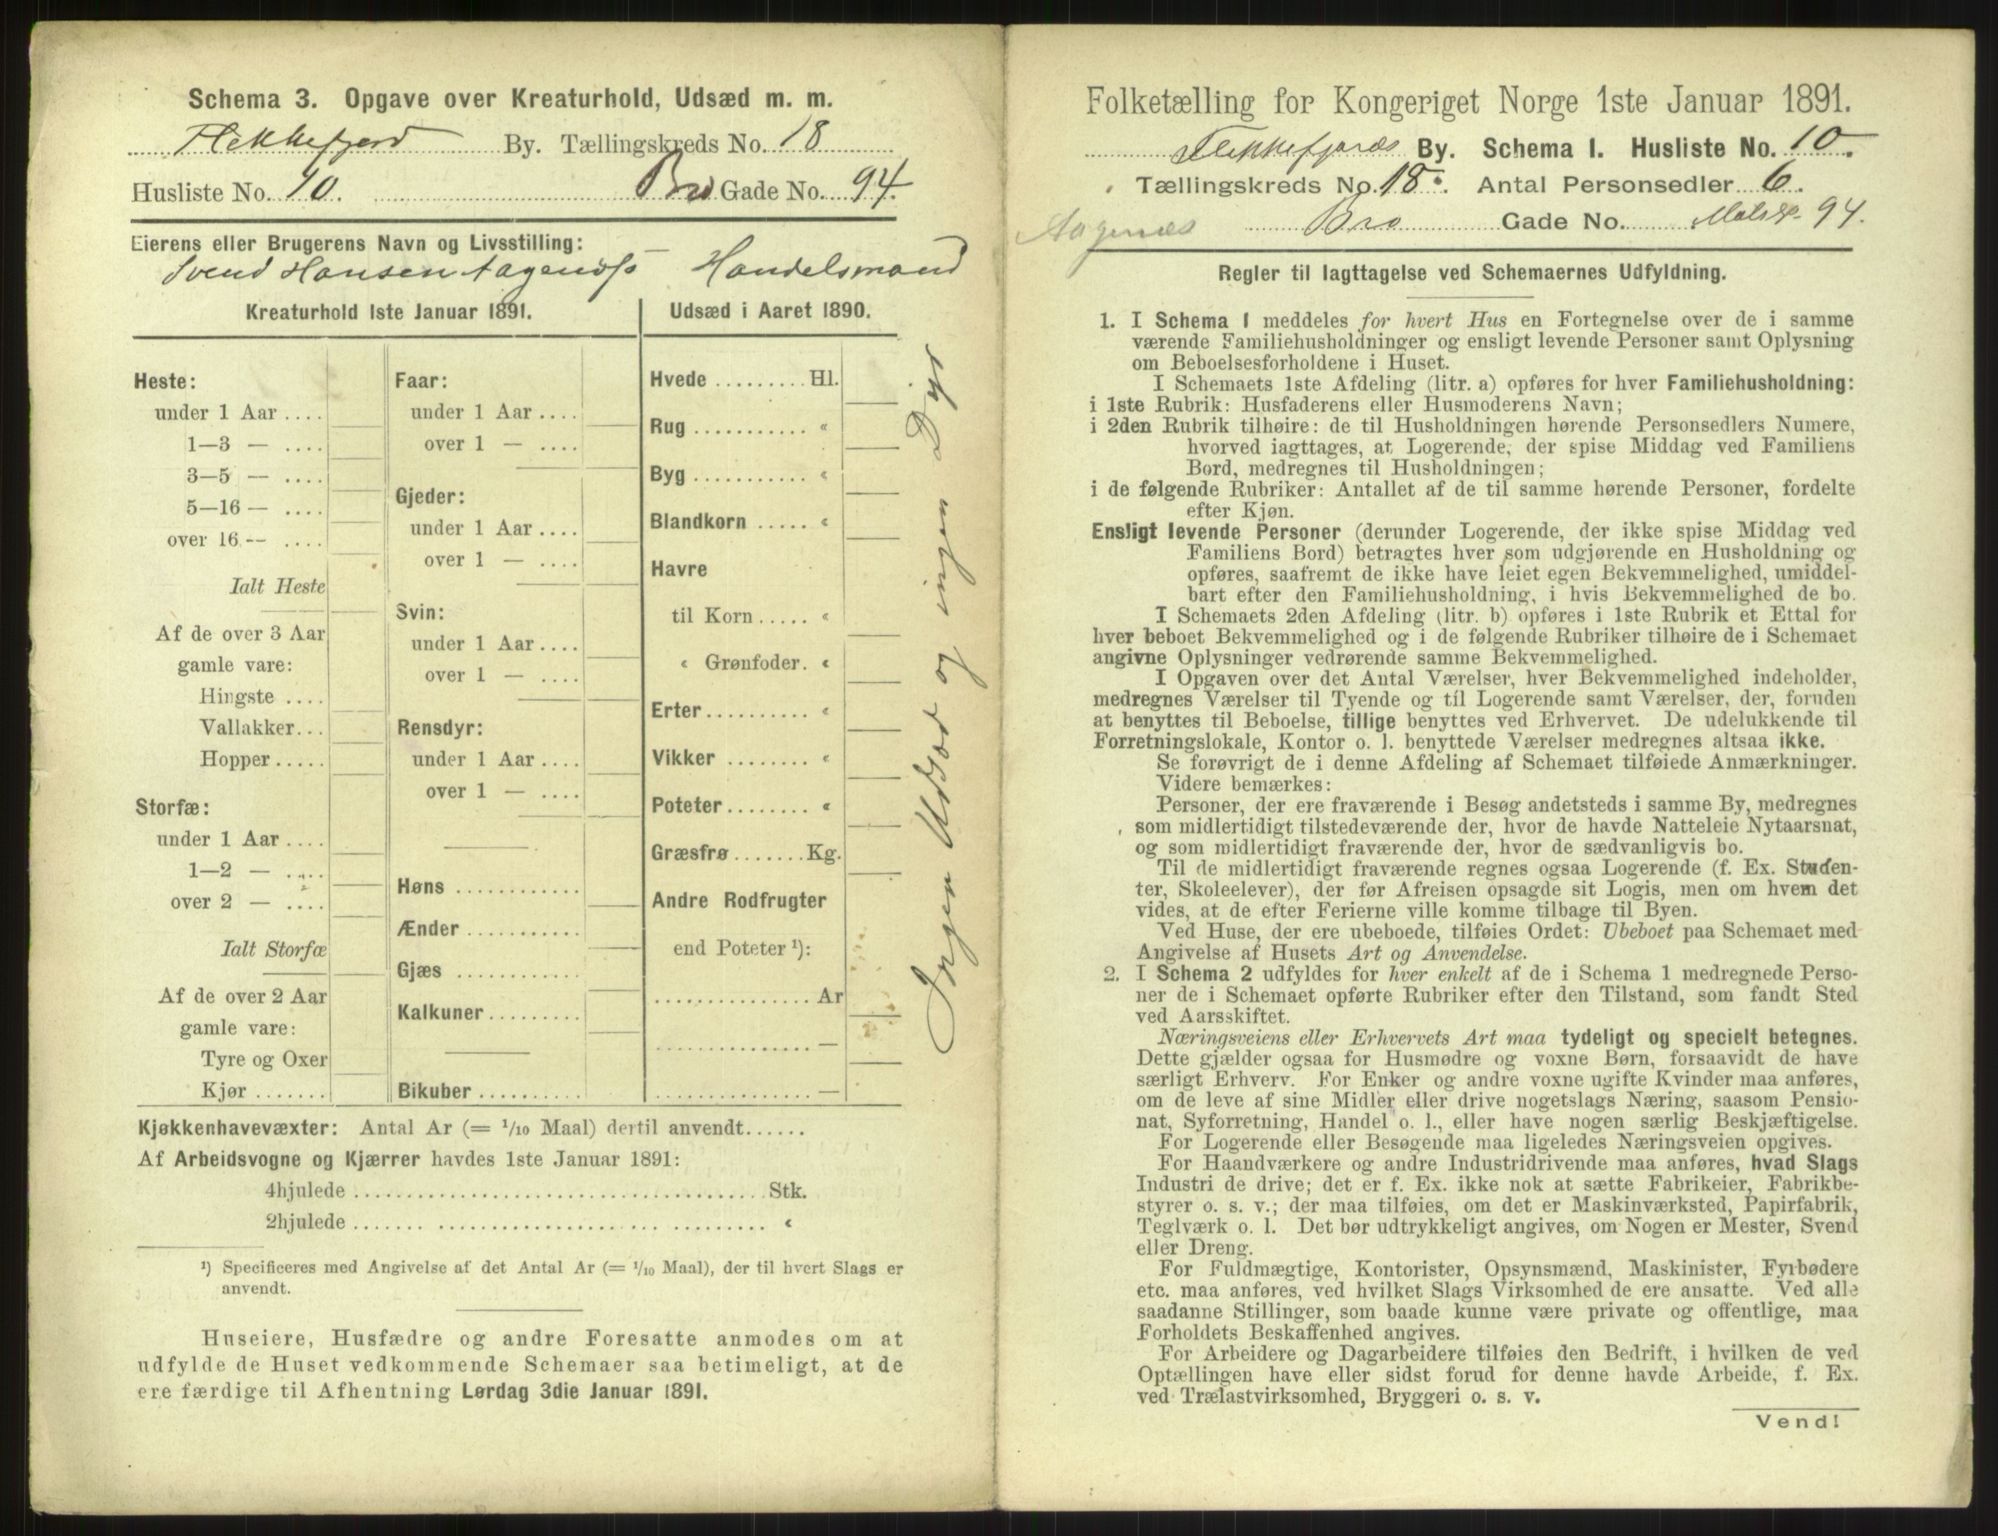 Schema 3. Opgave over Kreaturhold, Udsæd m. m.
Flekkefjord By. Tællingskreds No. 18
Husliste No. 10. Bro Gade No. 94.
Eierens eller Brugerens Navn og Livsstilling:
Svend Hansen Aagenæs Handelsmand
Kreaturhold 1ste Januar 1891.
Heste:
under 1 Aar ....
1—3 — ....
3—5 — ....
5—16 — ....
over 16 -- ....
Ialt Heste
Af de over 3 Aar
gamle vare:
Hingste ....
Vallakker...
Hopper.....
Storfæ:
under 1 Aar....
1—2 — ....
over 2 — ....
Ialt Storfæ
Af de over 2 Aar
gamle vare:
Tyre og Oxer
Kjør .......
Faar:
under 1 Aar ....
over 1 — ....
Gjeder:
under 1 Aar ....
over 1 — ....
Svin:
under 1 Aar ....
over 1 — ....
Rensdyr:
under 1 Aar ....
over 1 — ....
Høns ............
Ænder ...........
Gjæs ............
Kalkuner.........
Bikuber ..........
Udsæd i Aaret 1890.
Hvede ......... Hl.
Rug ........... «
Byg ........... «
Blandkorn ..... «
Havre
til Korn..... «
« Grønfoder. «
Erter.......... «
Vikker ........ «
Poteter........ «
Græsfrø .......Kg.
Andre Rodfrugter
end Poteter ¹):
............... Ar
............... —
............... —
Ingen Udsæd og ingen Dyr
Kjøkkenhavevæxter: Antal Ar (= 1/10 Maal) dertil anvendt......
Af Arbeidsvogne og Kjærrer havdes 1ste Januar 1891:
4hjulede ........................................ Stk.
2hjulede ........................................ «
¹) Specificeres med Angivelse af det Antal Ar (= 1/10 Maal), der til hvert Slags er
anvendt.
Huseiere, Husfædre og andre Foresatte anmodes om at
udfylde de Huset vedkommende Schemaer saa betimeligt, at de
ere færdige til Afhentning Lørdag 3die Januar 1891.
Folketælling for Kongeriget Norge 1ste Januar 1891.
Flekkefjords By. Schema I. Husliste No. 10.
Tællingskreds No. 18. Antal Personsedler 6.
Aagenæs Bro Gade No. 94.
Regler til Iagttagelse ved Schemaernes Udfyldning.
1. I Schema I meddeles for hvert Hus en Fortegnelse over de i samme
værende Familiehusholdninger og ensligt levende Personer samt Oplysning
om Beboelsesforholdene i Huset.
I Schemaets 1ste Afdeling (litr. a) opføres for hver Familiehusholdning:
i 1ste Rubrik: Husfaderens eller Husmoderens Navn;
i 2den Rubrik tilhøire: de til Husholdningen hørende Personsedlers Numere,
hvorved iagttages, at Logerende, der spise Middag ved Familiens
Bord, medregnes til Husholdningen;
i de følgende Rubriker: Antallet af de til samme hørende Personer, fordelte
efter Kjøn.
Ensligt levende Personer (derunder Logerende, der ikke spise Middag ved
Familiens Bord) betragtes hver som udgjørende en Husholdning og
opføres, saafremt de ikke have leiet egen Bekvemmelighed, umiddel-
bart efter den Familiehusholdning, i hvis Bekvemmelighed de bo.
I Schemaets 2den Afdeling (litr. b) opføres i 1ste Rubrik et Ettal for
hver beboet Bekvemmelighed og i de følgende Rubriker tilhøire de i Schemaet
angivne Oplysninger vedrørende samme Bekvemmelighed.
I Opgaven over det Antal Værelser, hver Bekvemmelighed indeholder,
medregnes Værelser til Tyende og til Logerende samt Værelser, der, foruden
at benyttes til Beboelse, tillige benyttes ved Erhvervet. De udelukkende til
Forretningslokale, Kontor o. l. benyttede Værelser medregnes altsaa ikke.
Se forøvrigt de i denne Afdeling af Schemaet tilføiede Anmærkninger.
Videre bemærkes:
Personer, der ere fraværende i Besøg andetsteds i samme By, medregnes
som midlertidigt tilstedeværende der, hvor de havde Natteleie Nytaarsnat,
og som midlertidigt fraværende der, hvor de sædvanligvis bo.
Til de midlertidigt fraværende regnes ogsaa Logerende (f. Ex. Studen-
ter, Skoleelever), der før Afreisen opsagde sit Logis, men om hvem det
vides, at de efter Ferierne ville komme tilbage til Byen.
Ved Huse, der ere ubeboede, tilføies Ordet: Ubeboet paa Schemaet med
Angivelse af Husets Art og Anvendelse.
2. I Schema 2 udfyldes for hver enkelt af de i Schema 1 medregnede Perso-
ner de i Schemaet opførte Rubriker efter den Tilstand, som fandt Sted
ved Aarsskiftet.
Næringsveiens eller Erhvervets Art maa tydeligt og specielt betegnes.
Dette gjælder ogsaa for Husmødre og voxne Børn, forsaavidt de have
særligt Erhverv. For Enker og andre voxne ugifte Kvinder maa anføres,
om de leve af sine Midler eller drive nogetslags Næring, saasom Pensio-
nat, Syforretning, Handel o. l., eller have nogen særlig Beskjæftigelse.
For Logerende eller Besøgende maa ligeledes Næringsveien opgives.
For Haandværkere og andre Industridrivende maa anføres, hvad Slags
Industri de drive; det er f. Ex. ikke nok at sætte Fabrikeier, Fabrikbe-
styrer o. s. v.; der maa tilføies, om det er Maskinværksted, Papirfabrik,
Teglværk o. l. Det bør udtrykkeligt angives, om Nogen er Mester, Svend
eller Dreng.
For Fuldmægtige, Kontorister, Opsynsmænd, Maskinister, Fyrbødere
etc. maa anføres, ved hvilket Slags Virksomhed de ere ansatte. Ved alle
saadanne Stillinger, som baade kunne være private og offentlige, maa
Forholdets Beskaffenhed angives.
For Arbeidere og Dagarbeidere tilføies den Bedrift, i hvilken de ved
Optællingen have eller sidst forud for denne havde Arbeide, f. Ex.
ved Trælastvirksomhed, Bryggeri o. s. v.
Vend!